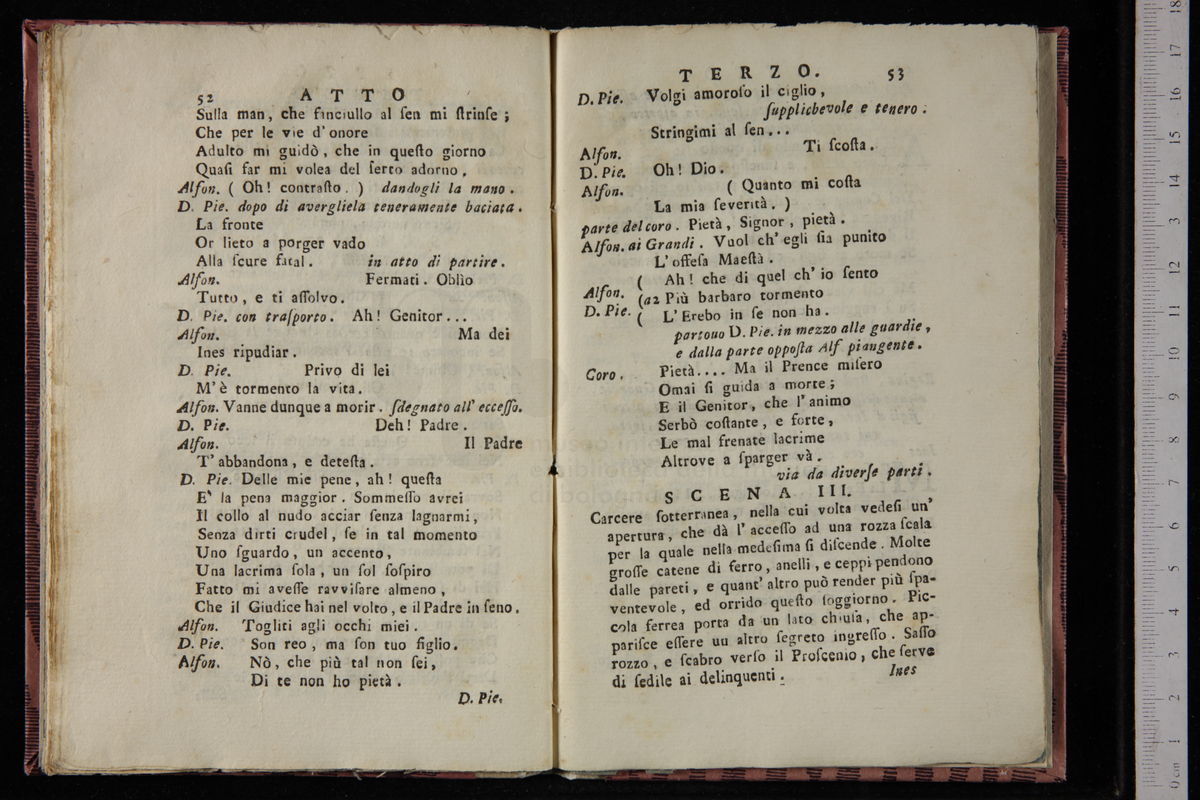 52 ATTO
Sulla man, che finciullo al ſen mi ſtrinſe;
Che per le vie d'onore
Adulto mi guidò, che in queſto giorno
Quaſi far mi volea del ſerto adorno.
Alfon. ( Oh! contraſto. ) dandogli la mano.
D. Pie. dopo di avergliela teneramente baciata.
La fronte
Or lieto a porger vado
Alla ſcure fatal. in atto di partire.
Alfon. Fermati. Oblìo
Tutto, e ti aſſolvo.
D. Pie. con traſporto. Ah! Genitor...
Alfon. Ma dei
Ines ripudiar.
D. Pie. Privo di lei
M'è tormento la vita.
Alfon. Vanne dunque a morir. ſdegnato all' ecceſſo.
D. Pie. Deh! Padre.
Alfon. Il Padre
T'abbandona, e deteſta.
D. Pie. Delle mie pene, ah! queſta
E' la pena maggior. Sommeſſo avrei
Il collo al nudo acciar ſenza lagnarmi,
Senza dirti crudel, ſe in tal momento
Uno ſguardo, un accento,
Una lacrima ſola, un ſol ſoſpiro
Fatto mi aveſſe ravviſare almeno,
Che il Giudice hai nel volto, e il Padre in ſeno.
Alfon. Togliti agli occhi miei.
D. Pie. Son reo, ma ſon tuo figlio.
Alfon. Nò, che più tal non ſei,
Di te non ho pietà.
D. Pie.
TERZO. 53
D. Pie. Volgi amoroſo il ciglio,
ſupplichevole e tenero.
Stringimi al ſen...
Alfon. Ti ſcoſta.
D. Pie. Oh! Dio.
Alfon. ( Quanto mi coſta
La mia ſeverità. )
parte del coro. Pietà, Signor, pietà.
Alfon. ai Grandi. Vuol ch'egli ſia punito
L'offeſa Maeſtà.
( Ah! che di quel ch'io ſento
Alfon. (a2 Più barbaro tormento
D. Pie. ( L'Erebo in ſe non ha.
partouo D. Pie. in mezzo alle guardie,
e dalla parte oppoſta Alf piangente.
Coro. Pietà.... Ma il Prence miſero
Omai ſi guida a morte;
E il Genitor, che l'animo
Serbò coſtante, e forte,
Le mal frenate lacrime
Altrove a ſparger và.
via da diverſe parti.
SCENA III.
Carcere ſotterranea, nella cui volta vedeſi un'
apertura, che dà l'acceſſo ad una rozza ſcala
per la quale nella medeſima ſi diſcende. Molte
groſſe catene di ferro, anelli, e ceppi pendono
dalle pareti, e quant'altro può render più ſpa-
ventevole, ed orrido queſto ſoggiorno. Pic-
cola ferrea porta da un lato chiuſa, che ap-
pariſce eſſere uu altro ſegreto ingreſſo. Saſſo
rozzo, e ſcabro verſo il Proſcenio, che ſerve
di ſedile ai delinquenti.
Ines
0 cm 1 2 3 4 5 6 7 8 9 10 11 12 13 14 15 16 17 18